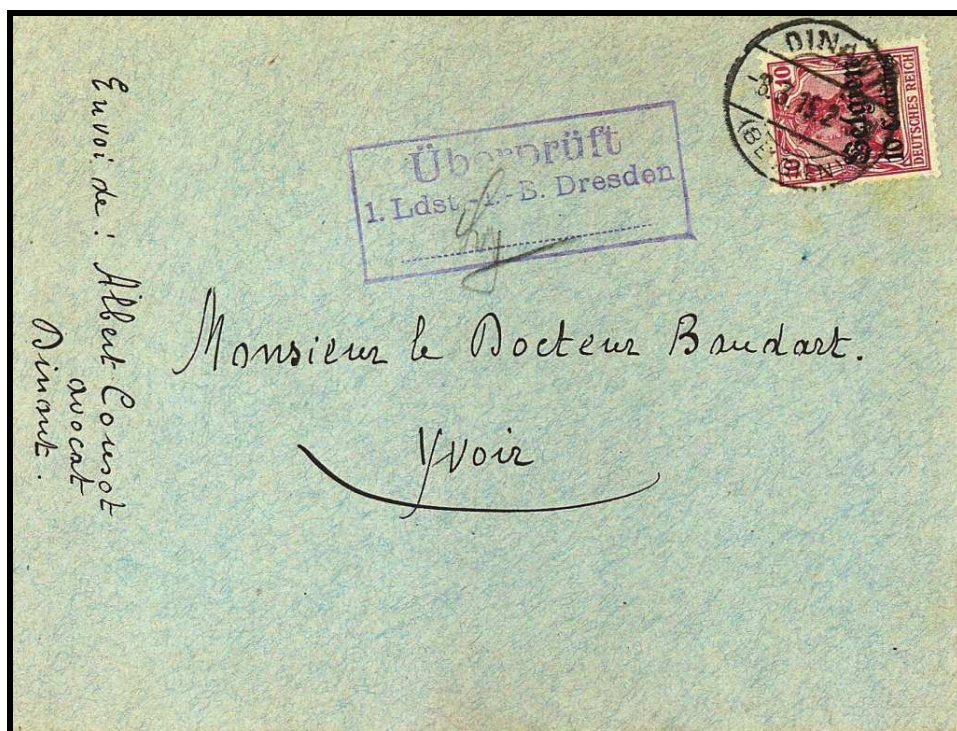 Envoi de : Albert Cousot
avocat
Dinant.
Überprüft
1. Ldst.-I.-B. Dresden
DINANT
(BELGIEN)
DEUTSCHES REICH
10
10
Belgien
10
Monsieur le Docteur Baudart.
Yvoir